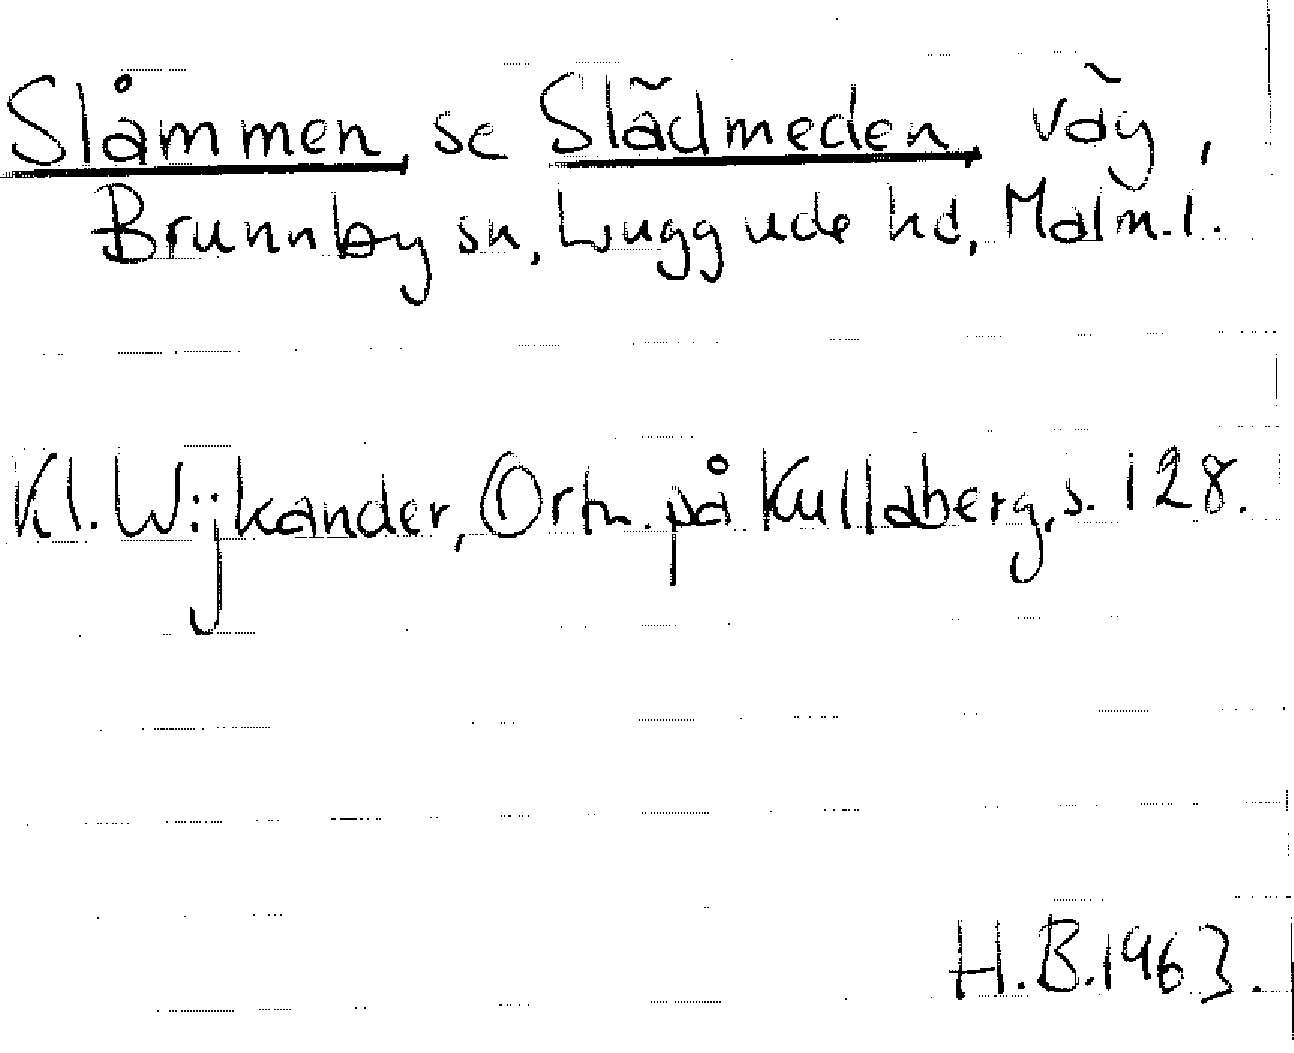 Slåmmen se Slädmeden väg,
Brunnby sn, Luggude hd, Malm.l.
Kl. Wijkander, Ortn. på Kullaberg, s. 128.
H.B.1963.